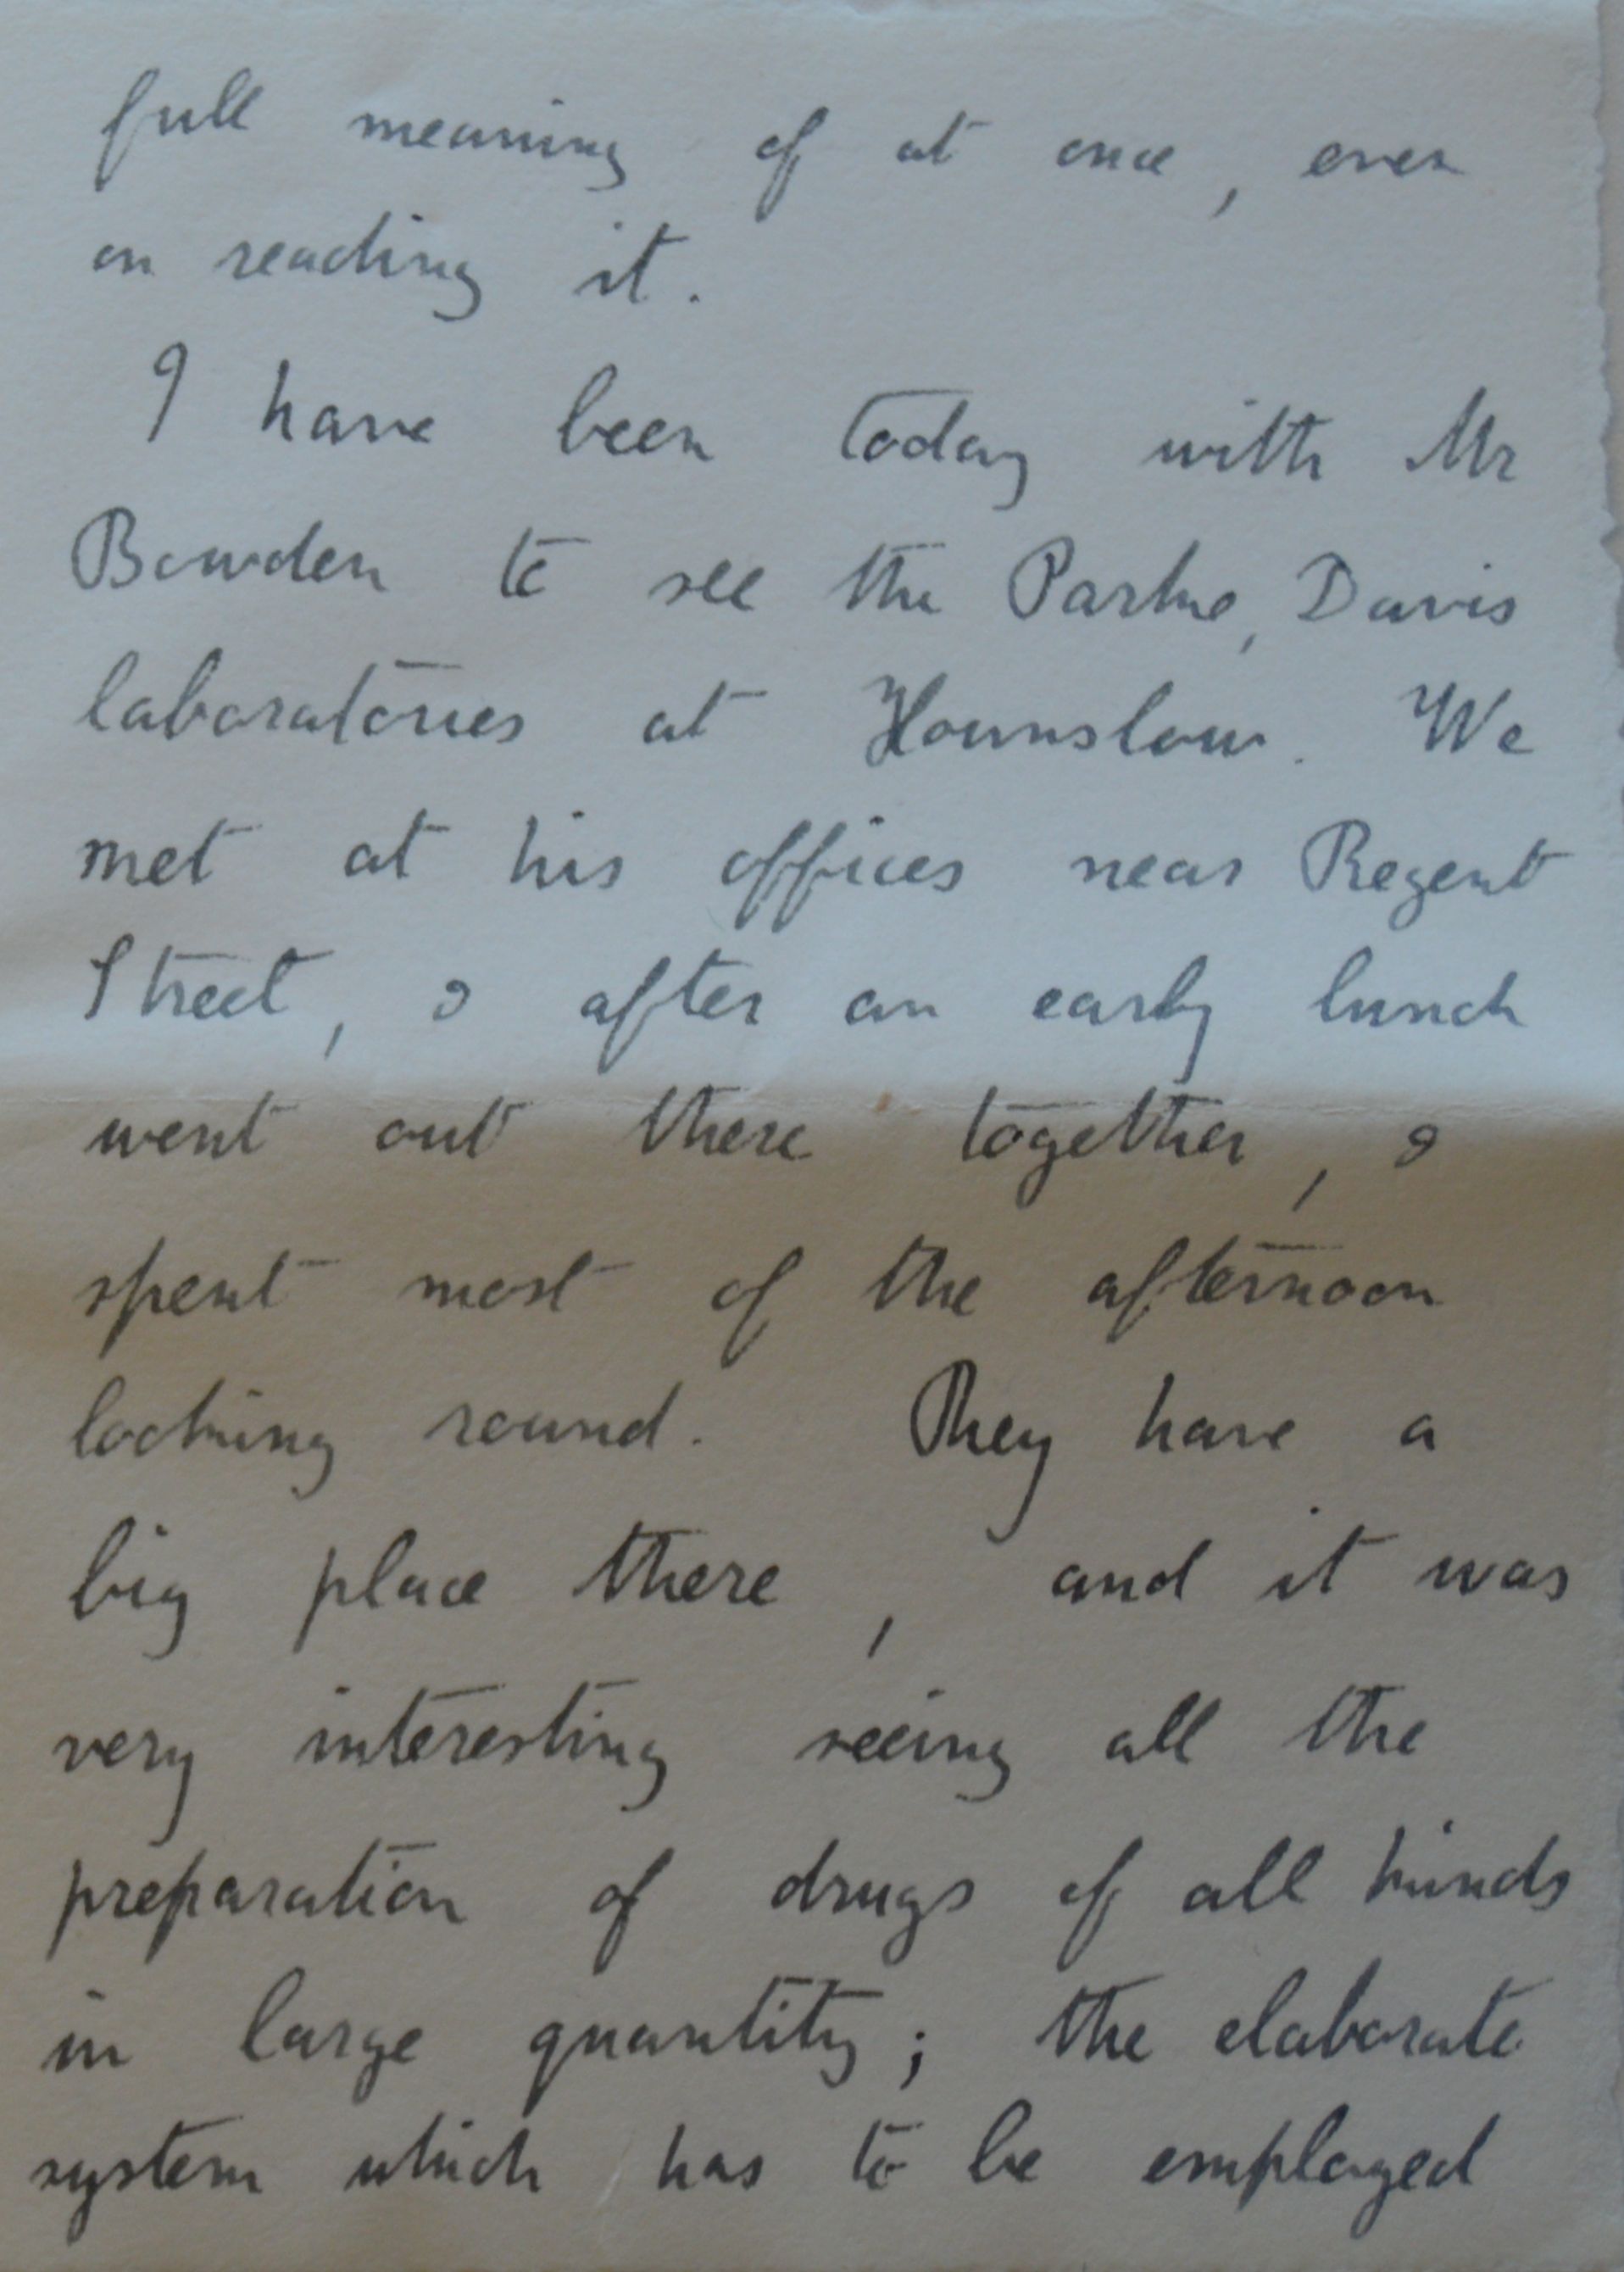 full meaning of at once, even
on reading it.
I have been today with Mr
Bowden to see the Parke, Davis
laboratories at Hounslow. We
met at his offices near Regent
Street, & after an early lunch
went out there together, &
spent most of the afternoon
looking round. They have a
big place there, and it was
very interesting seeing all the
preparation of drugs of all kinds
in large quantity; the elaborate
system which has to be employed